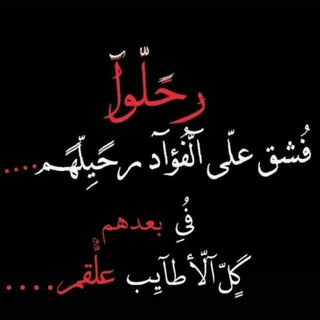 رحَلّوآ
فُشق علّى آلّفُؤآد رحًيِلّهًمـ....
فُيِ بعدهم
گِلّ آلّأطآيِب علّقم....